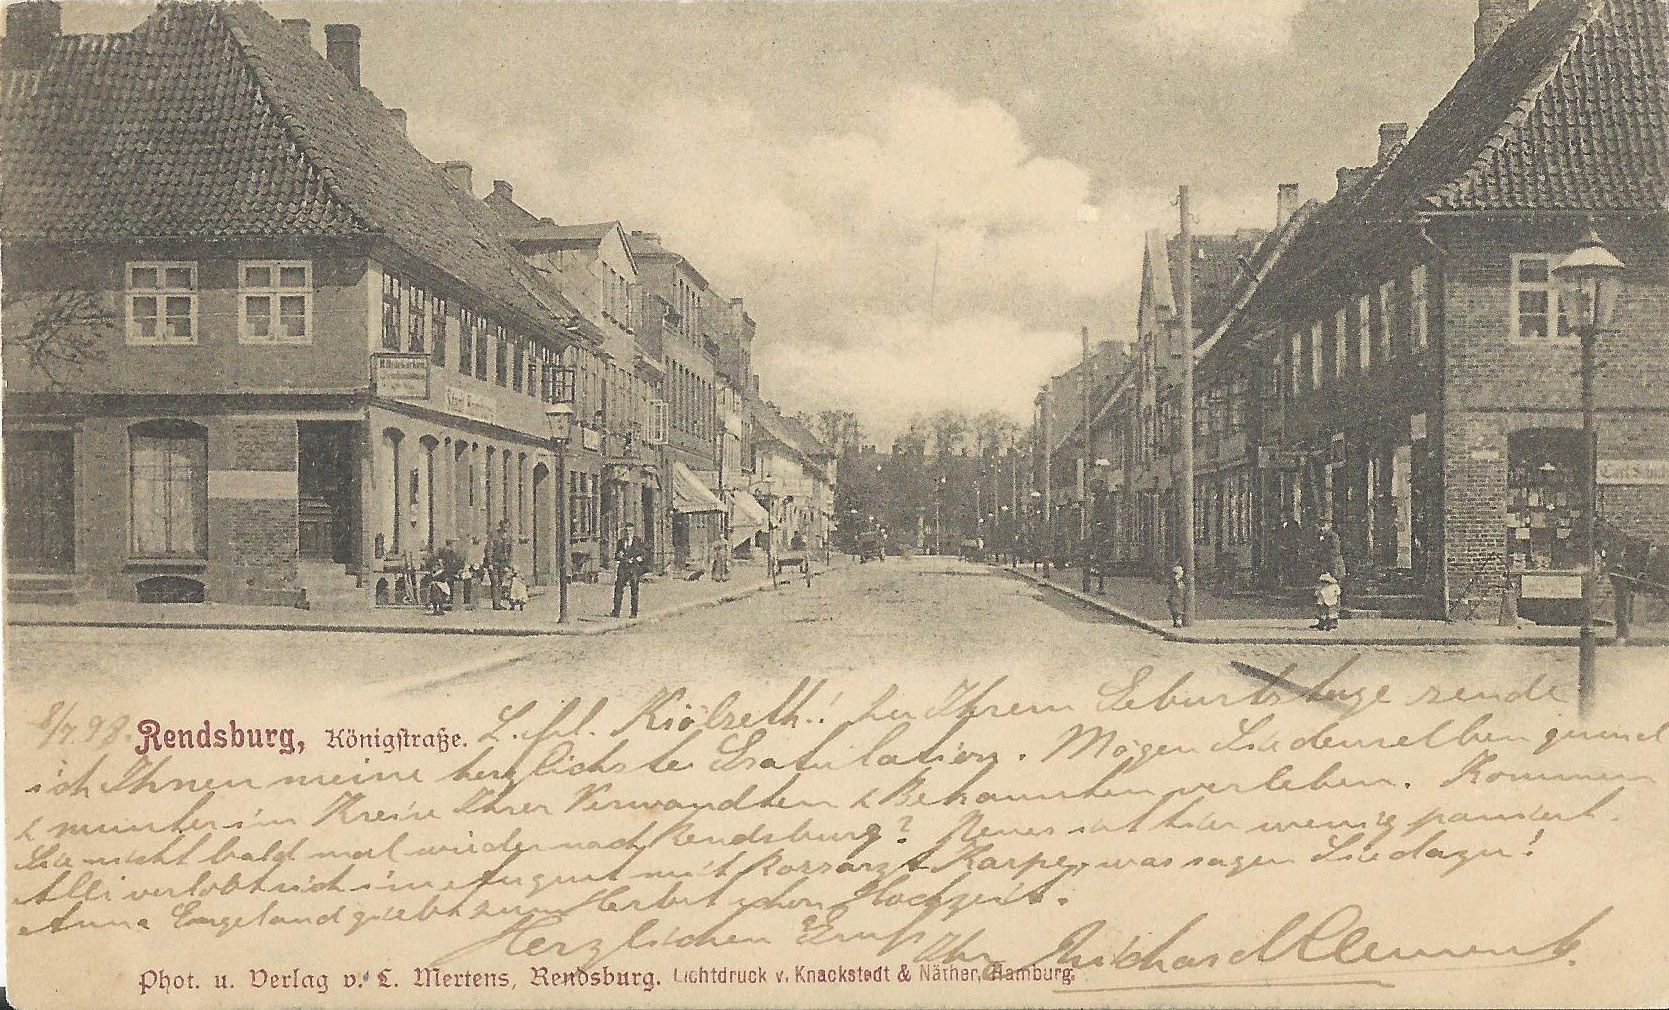 Carl Schu
8/7.98.
Rendsburg, Königstraße.
L. Frl. Kiölseth! Zu Ihrem Geburtstage sende
ich Ihnen meine herzlichste Gratulation. Mögen Sie denselben gesund
& munter im Kreise Ihrer Verwandten & Bekannten verleben. Kommen
Sie nicht bald mal wieder nach Rendsburg? Neues ist hier wenig passiert.
Elli verlobt sich im August mit Rossarzt Karpe, was sagen Sie dazu!
Anna Engeland giebt zum Herbst schon Hochzeit.
Herzlichen Gruß Ihr Richard Clement.
Phot. u. Verlag v. C. Mertens, Rendsburg. Lichtdruck v. Knackstedt & Näther, Hamburg.